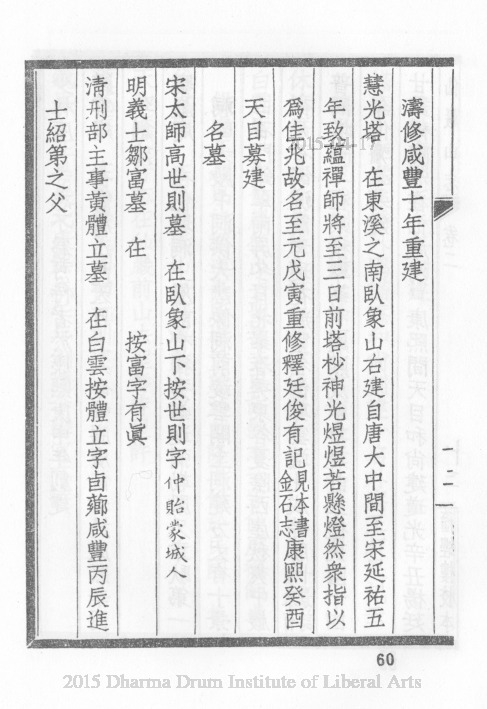 濤修咸豐十年重建
慧光塔　在東溪之南臥象山右建自唐大中間至宋延祐五
年致蘊禪師將至三日前塔杪神光煜煜若懸燈然衆指以
爲佳兆故名至元戊寅重修釋廷俊有記見本書金石志康熙癸酉
天目募建
名墓
宋太師高世則墓　在臥象山下按世則字仲貽蒙城人
明義士鄒富墓　在　　　按富字有眞
淸刑部主事黃體立墓　在白雲按體立字卣薌咸豐丙辰進
士紹第之父
一二
60
2015-04-17
2015 Dharma Drum Institute of Liberal Arts